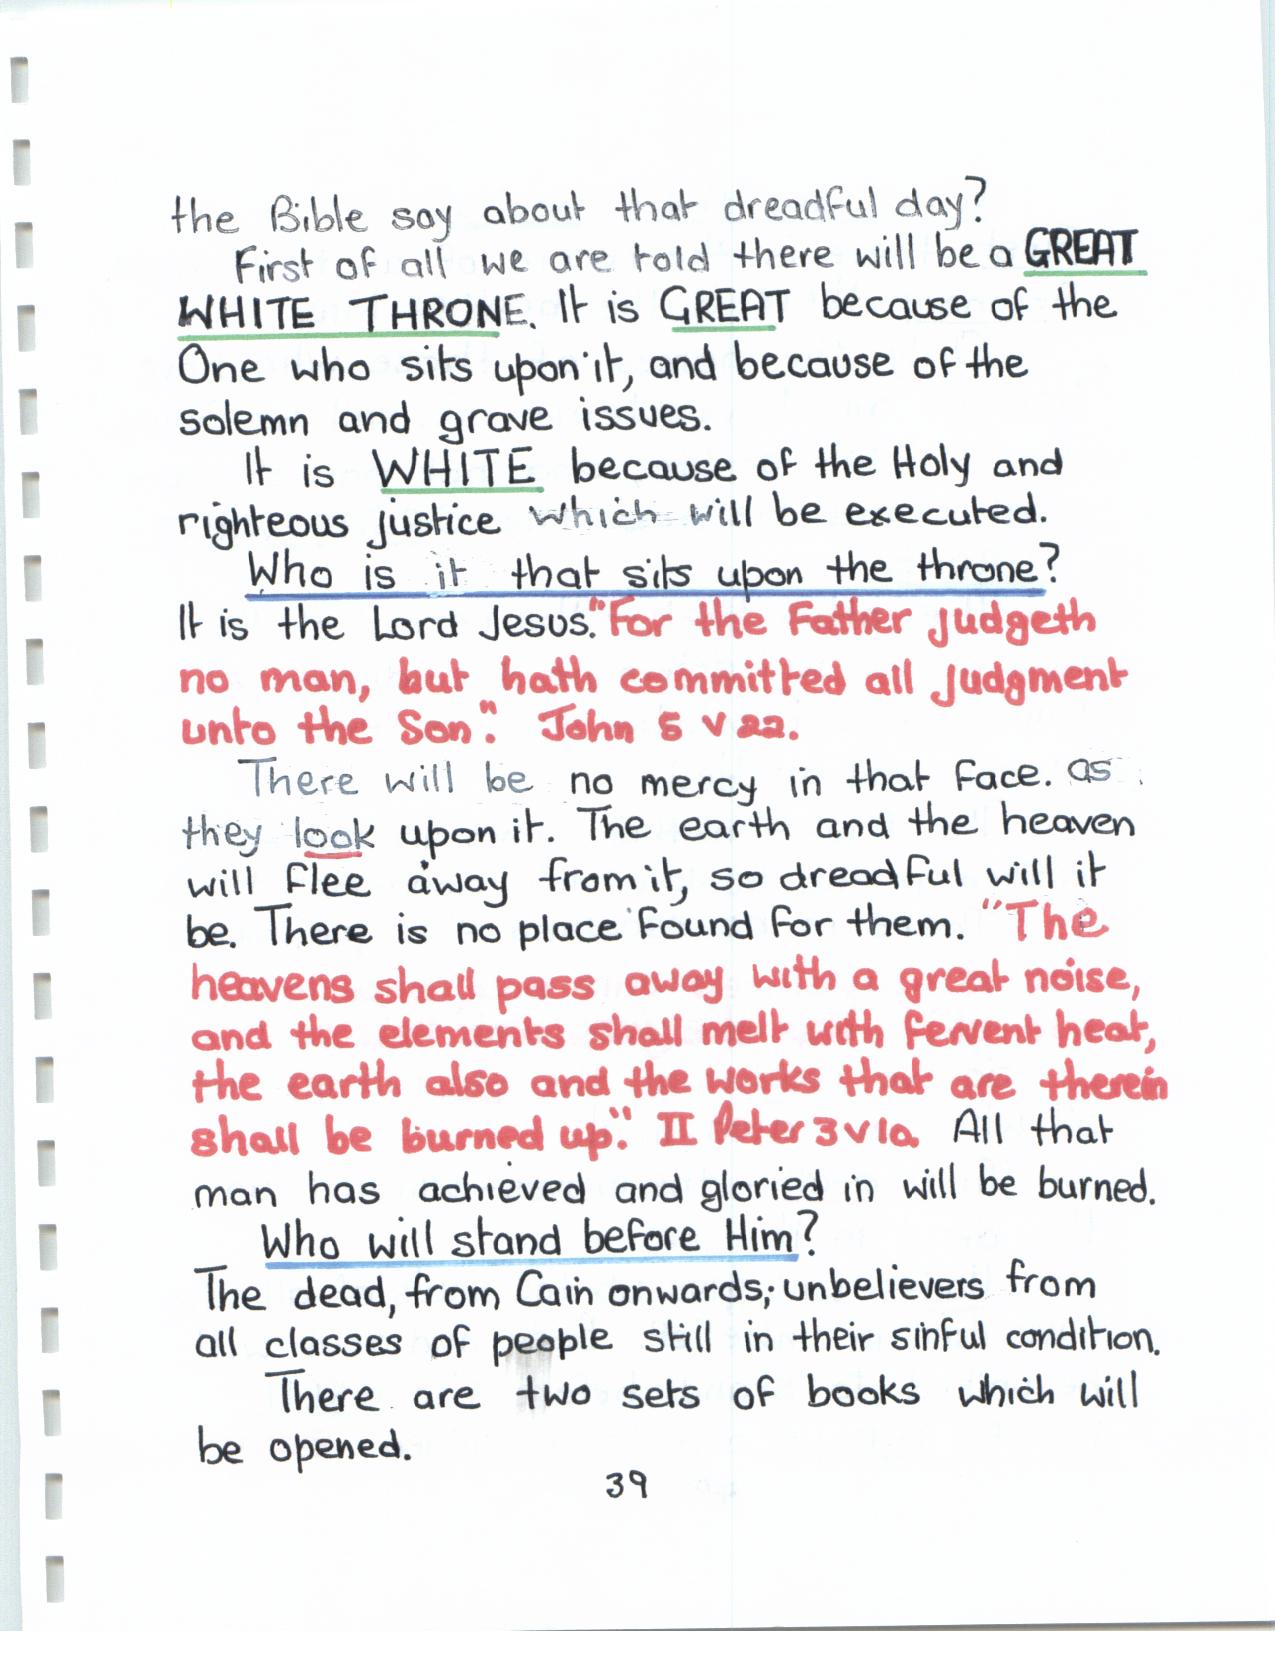 the Bible say about that dreadful day?
First of all we are told there will be a GREAT
WHITE THRONE. It is GREAT because of the
One who sits upon it, and because of the
solemn and grave issues.
It is WHITE because of the Holy and
righteous justice which will be executed.
Who is it that sits upon the throne?
It is the Lord Jesus. "For the Father judgeth
no man, but hath committed all judgment
unto the Son". John 5 v 22.
There will be no mercy in that face. as
they look upon it. The earth and the heaven
will flee away from it, so dreadful will it
be. There is no place found for them. "The
heavens shall pass away with a great noise,
and the elements shall melt with fervent heat,
the earth also and the works that are therein
shall be burned up." II Peter 3 v 10. All that
man has achieved and gloried in will be burned.
Who will stand before Him?
The dead, from Cain onwards; unbelievers from
all classes of people still in their sinful condition.
There are two sets of books which will
be opened.
39